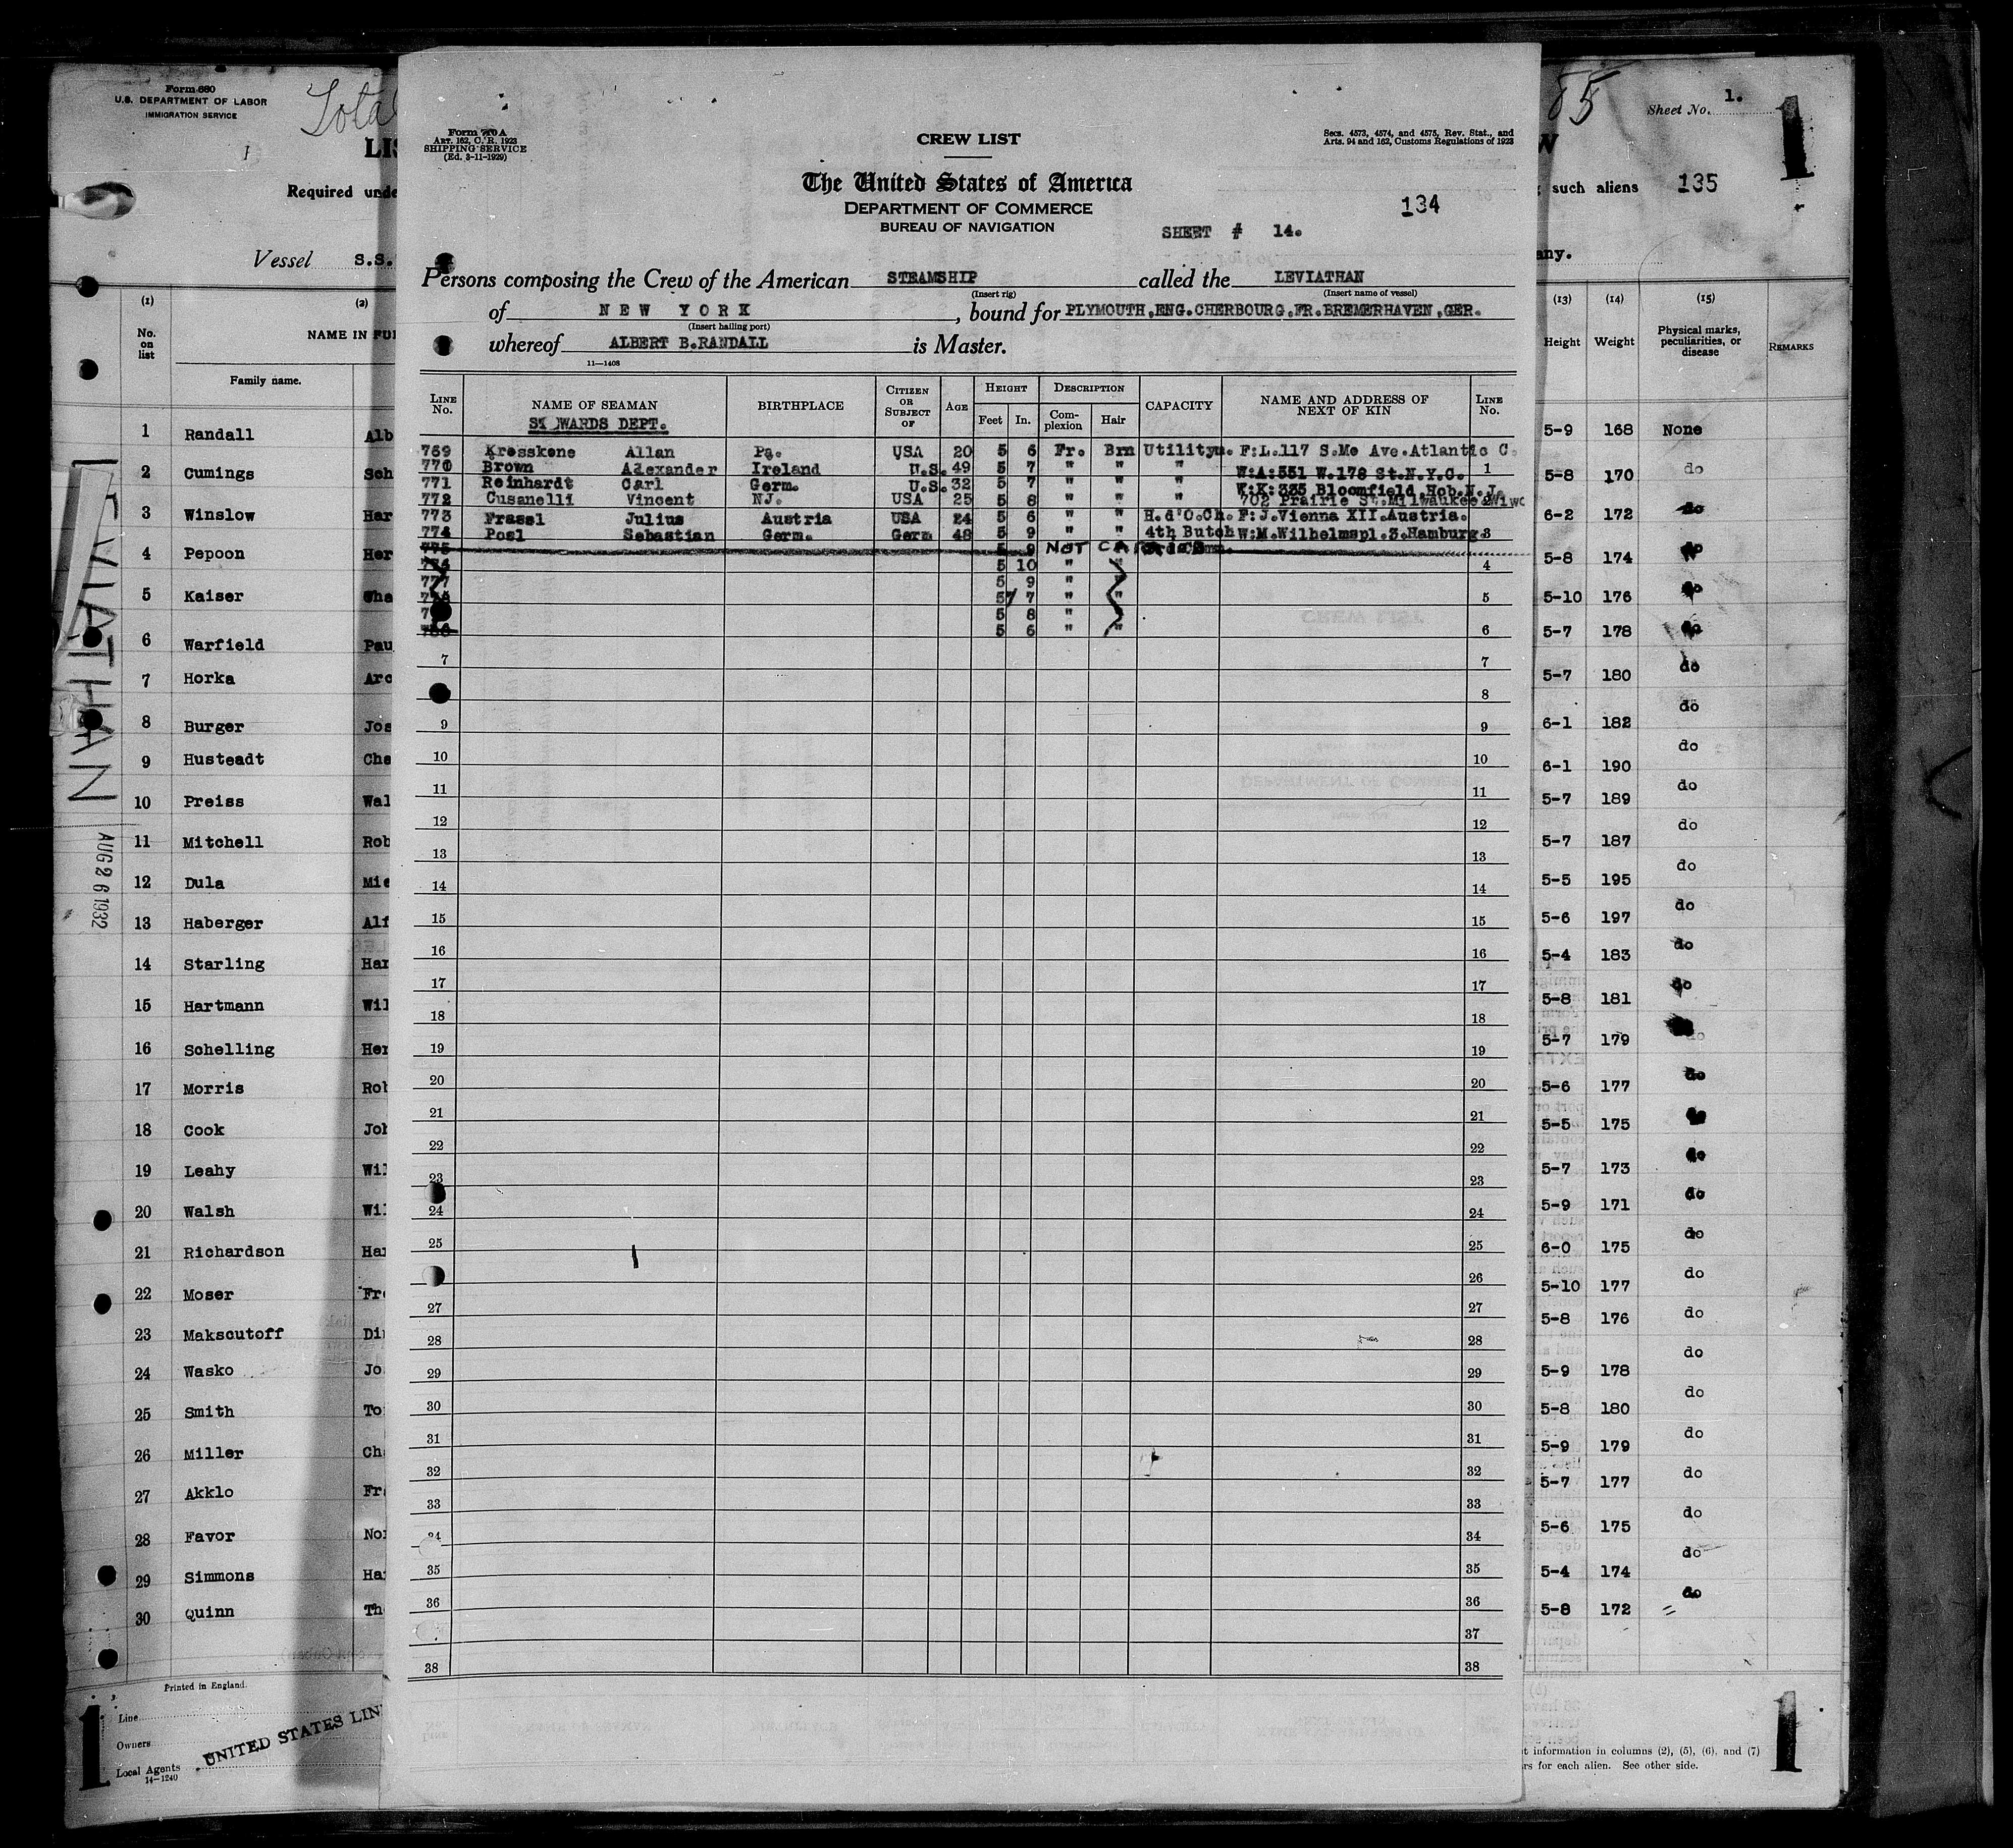 Form 680
U.S. DEPARTMENT OF LABOR
IMMIGRATION SERVICE
Total
1
LIS
Required unde
Vessel S.S.
(1) (2)
No. on list
NAME IN FUL
Family name.
1 Randall Alb
2 Cumings Sch
3 Winslow Har
4 Pepoon Her
5 Kaiser Cha
6 Warfield Pau
7 Horka Arc
8 Burger Jos
9 Husteadt Che
10 Preiss Wal
11 Mitchell Rob
12 Dula Mie
13 Haberger Alf
14 Starling Har
15 Hartmann Wil
16 Schelling Her
17 Morris Rob
18 Cook Joh
19 Leahy Wil
20 Walsh Wil
21 Richardson Har
22 Moser Fre
23 Makscutoff Dim
24 Wasko Jo
25 Smith To
26 Miller Cha
27 Akklo Fra
28 Favor Nor
29 Simmons Har
30 Quinn Th
Printed in England.
Line
Owners
Local Agents
14-1240
UNITED STATES LIN
1
LEVIATHAN
AUG 26 1932
Form 710 A
Art. 162, C. R. 1923
SHIPPING SERVICE
(Ed. 3-11-1929)
CREW LIST
Secs. 4573, 4574, and 4575, Rev. Stat., and
Arts. 94 and 162, Customs Regulations of 1923
The United States of America
DEPARTMENT OF COMMERCE
BUREAU OF NAVIGATION
134
SHEET # 14.
Persons composing the Crew of the American STEAMSHIP called the LEVIATHAN
(Insert rig) (Insert name of vessel)
of NEW YORK, bound for PLYMOUTH,ENG.CHERBOURG,FR.BREMERHAVEN,GER.
(Insert hailing port)
whereof ALBERT B.RANDALL is Master.
11-1408
LINE No. NAME OF SEAMAN BIRTHPLACE CITIZEN OR SUBJECT OF AGE HEIGHT Feet In. DESCRIPTION Complexion Hair CAPACITY NAME AND ADDRESS OF NEXT OF KIN LINE No.
STEWARDS DEPT.
769 Kresskene Allan Pa. USA 20 5 6 Fr. Brn Utilitym. F:L.117 S.Mo Ave.Atlantic C.
770 Brown Alexander Ireland U.S. 49 5 7 " " " W:A:551 W.178 St.N.Y.C. 1
771 Reinhardt Carl Germ. U.S. 32 5 7 " " " W:K:335 Bloomfield,Hob.N.J.
772 Cusanelli Vincent NJ. USA 25 5 8 " " " 702 Prairie St.Milwaukee
773 Frassl Julius Austria USA 24 5 6 " " H.d'O.Ch. F:J.Vienna XII.Austria.
774 Posl Sebastian Germ. Germ 48 5 9 " " 4th Butch W:M.Wilhelmspl.3.Hamburg 3
775 5 9 NOT CARRIED
776 5 10 " " 4
777 5 9 " "
778 5 7 " " 5
5 8 "
780 5 6 " " 6
7 7
8
9 9
10 10
11 11
12 12
13 13
14 14
15 15
16 16
17 17
18 18
19 19
20 20
21 21
22 22
23 23
24 24
25 25
26
27 27
28 28
29 29
30 30
31 31
32 32
33 33
34 34
35 35
36 36
37
38 38
85
Sheet No. 1.
1
W
such aliens 135
any.
(13) (14) (15)
Height Weight Physical marks, peculiarities, or disease REMARKS
5-9 168 None
5-8 170 do
6-2 172 do
5-8 174 do
5-10 176 do
5-7 178 do
5-7 180 do
6-1 182 do
6-1 190 do
5-7 189 do
5-7 187 do
5-5 195 do
5-6 197 do
5-4 183 do
5-8 181 do
5-7 179 do
5-6 177 do
5-5 175 do
5-7 173 do
5-9 171 do
6-0 175 do
5-10 177 do
5-8 176 do
5-9 178 do
5-8 180 do
5-9 179 do
5-7 177 do
5-6 175 do
5-4 174 do
5-8 172 do
t information in columns (2), (5), (6), and (7)
rs for each alien. See other side.
1